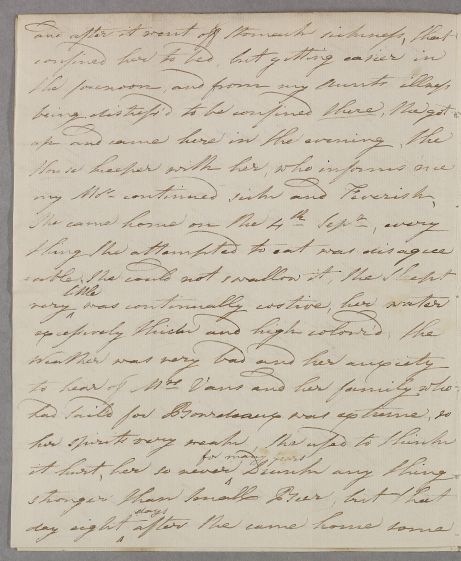 and after it went off stomach sickness, that
confined her to bed, but getting easier in
the forenoon, and from my Aunts illness
being distress'd to be confined there, she got
up and came here in the evening, the
House keeper with her, who informs me
my Mr continued sick and Feverish,
She came home on the 4th Sepr, every
thing she attempted to eat was disagree
=able, she could not swallow it, she slept
very little was continually costive, her water
excessively thick and high colour'd, the
Weather was very bad and her anxiety
to hear of Mrs Vans and her family who
had saild for Bourdeaux was extreme, so
her spirits very weak. She used to think
it hurt, her so never for many years drunk any thing
stronger than Small Beer, but that
day eight days after she came home some